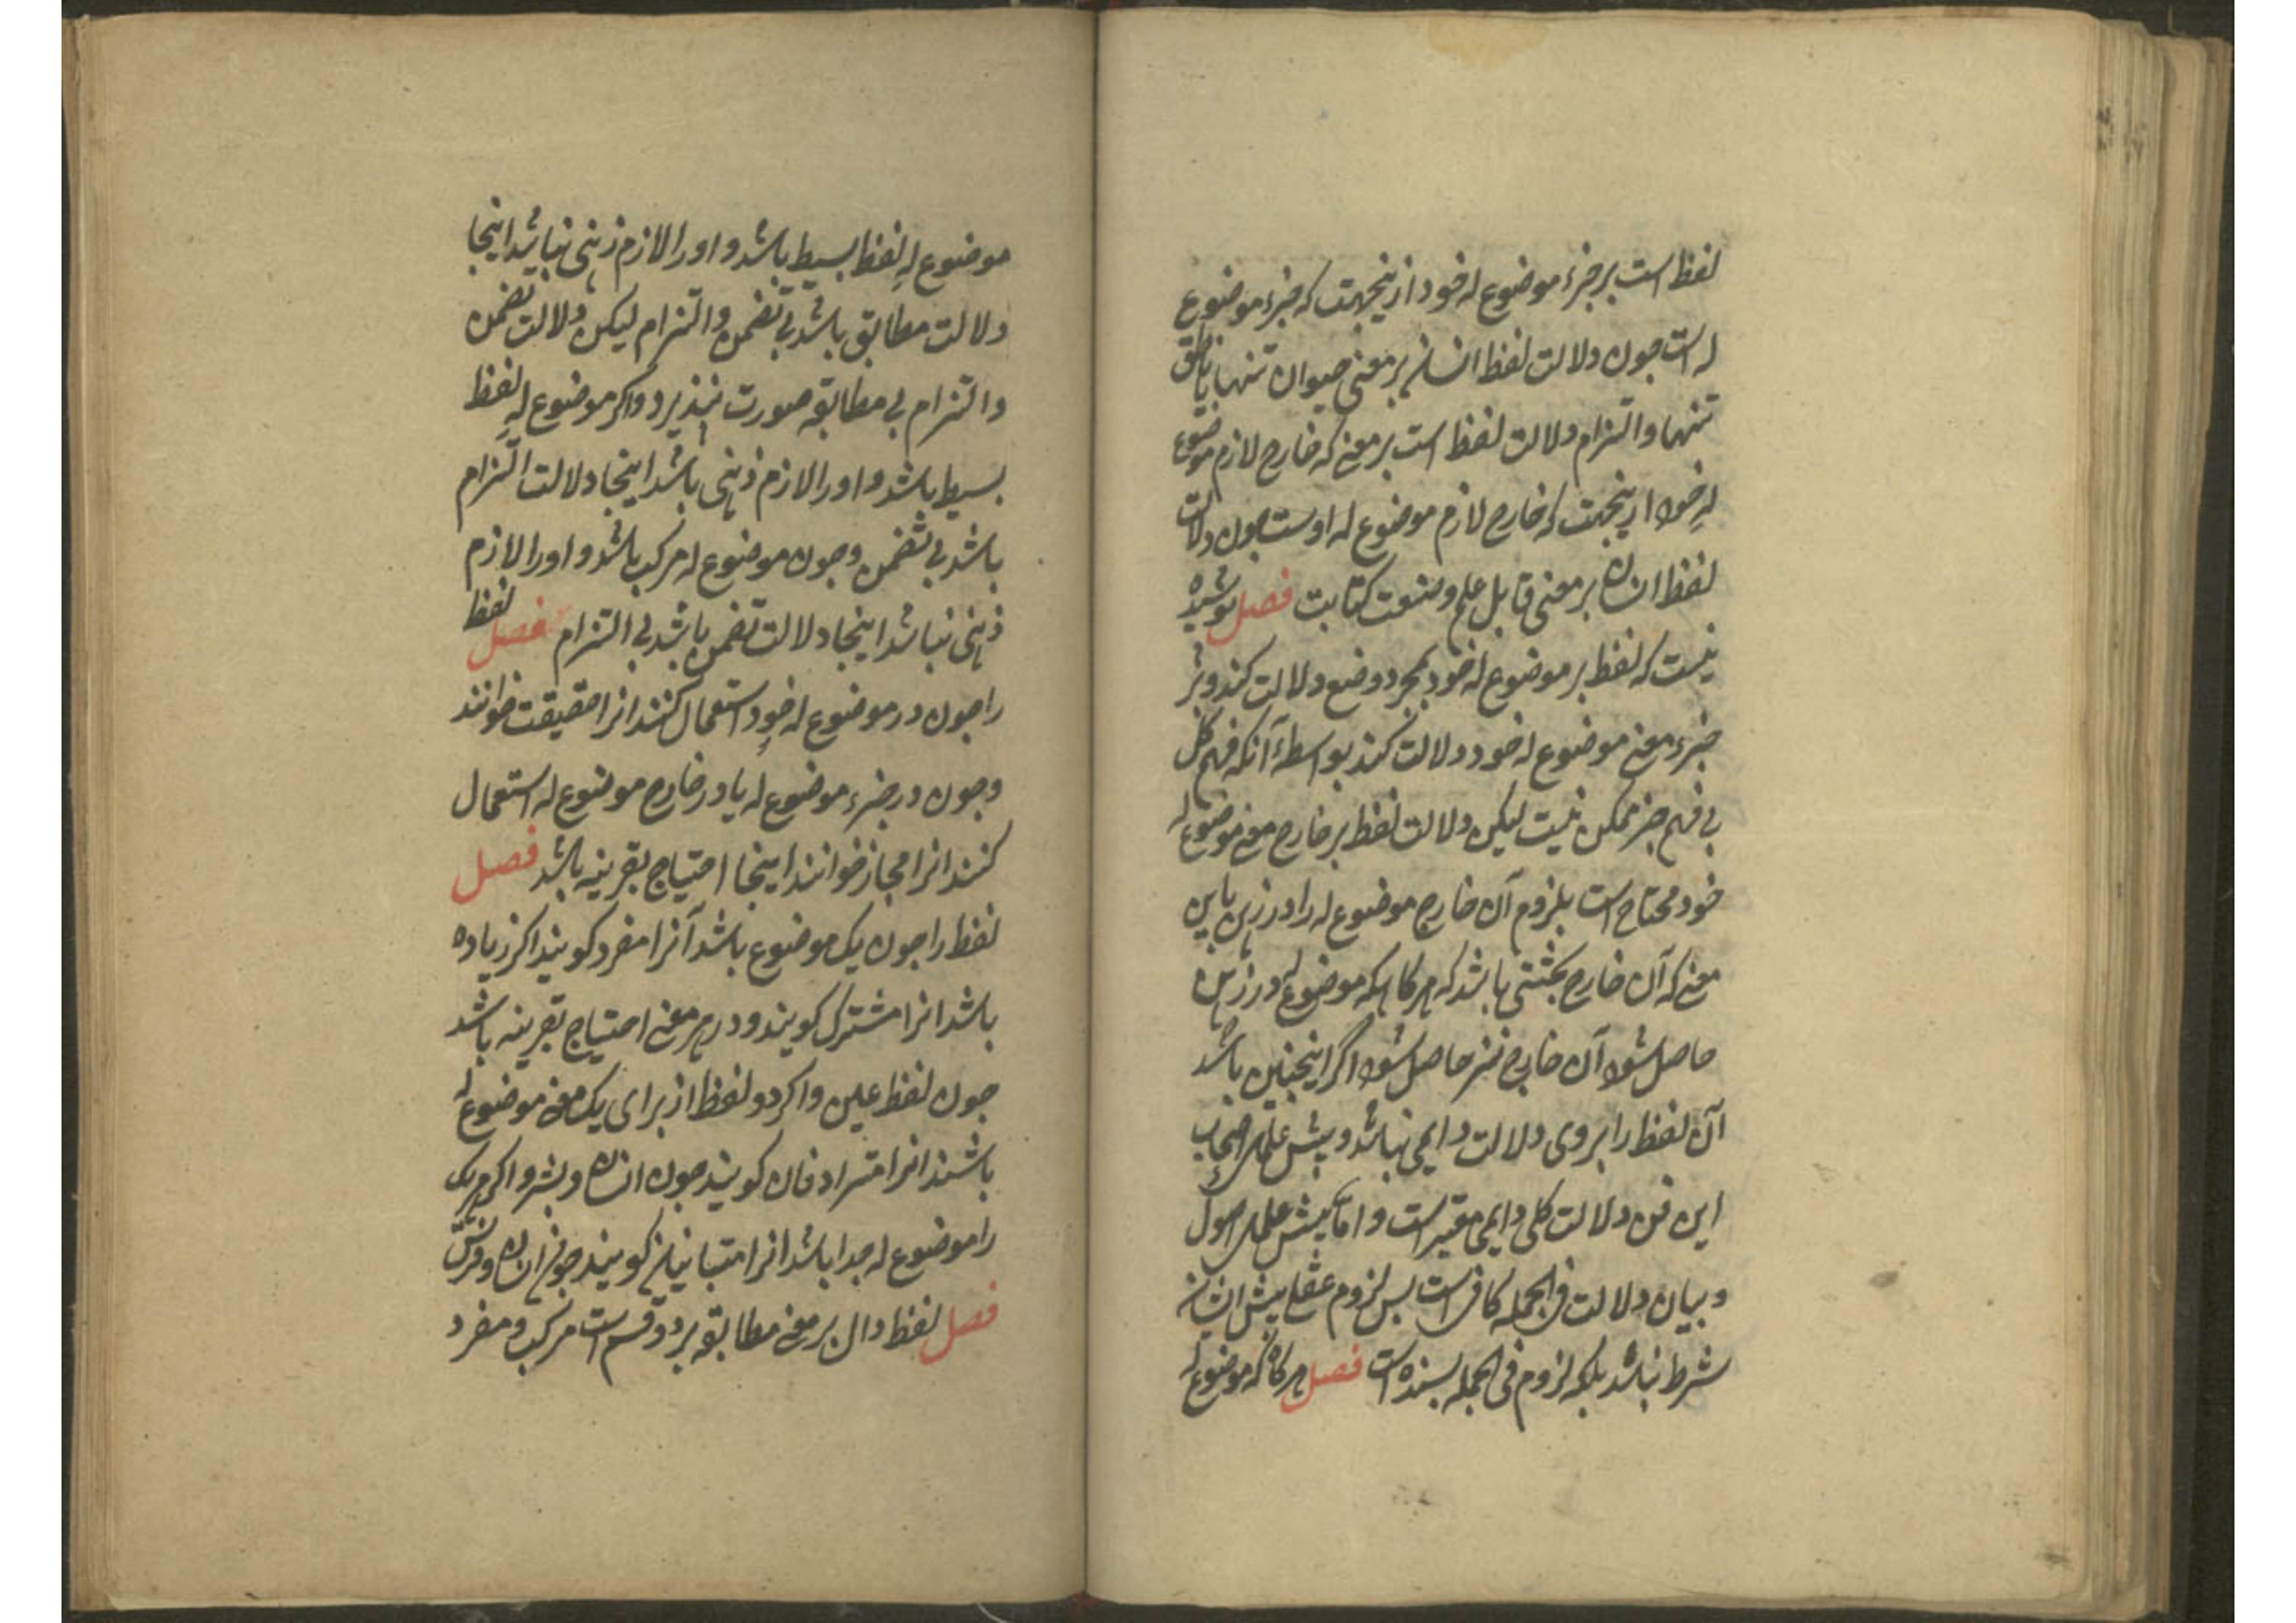 لفظ است بر جزء موضوع له خود ازینجهت که جزء موضوع
له است جون دلالت لفظ انسان بر معنی حیوان تنها یا ناطق
تنها و التزام دلالت لفظ است بر معنی که خارج لازم موضوع
له خود ازینجهت که خارج لازم موضوع له اوست جون دلالت
لفظ انسان بر معنی قابل علم و صنعت کتابت فصل پوشیده
نیست که لفظ بر موضوع له خود بمجرد وضع دلالت کند و بر
جزء معنی موضوع له خود دلالت کند بواسطهٔ آنکه فهم کل
بی فهم جزء ممکن نیست لیکن دلالت لفظ بر خارج معنی موضوع له
خود محتاج است بلزوم آن خارج موضوع له را در ذهن باین
معنی که آن خارج بحیثیتی باشد که هرکاه که موضوع له در ذهن
حاصل شود آن خارج نیز حاصل شود اگر اینجنین باشد
آن لفظ را بر وی دلالت دایمی نباشد و پیش علمای اصحاب
این فن دلالت کلی دایمی معتبر است و اما پیش علمای اصول
و بیان دلالت فی الجمله کافی است پس لزوم عقلی پیش ایشان
شرط نباشد بلکه لزوم فی الجمله بسنده است فصل هرکاه که موضوع له
موضوع له لفظ بسیط باشد و او را لازم ذهنی نباشد اینجا
دلالت مطابق باشد بی تضمن و التزام لیکن دلالت تضمن
و التزام بی مطابقه صورت نپذیرد و اکر موضوع له لفظ
بسیط باشد و او را لازم ذهنی باشد اینجا دلالت التزام
باشد بی تضمن و جون موضوع له مرکب باشد و او را لازم
ذهنی نباشد اینجا دلالت تضمن باشد بی التزام فصل لفظ
را جون در موضوع له خود استعمال کنند انرا حقیقت خوانند
و جون در جزء موضوع له یا در خارج موضوع له استعمال
کنند انرا مجاز خوانند اینجا احتیاج بقرینه باشد فصل
لفظ را جون یک موضوع باشد آنرا مفرد کویند اکر زیاده
باشد انرا مشترک کویند و در هر معنی احتیاج بقرینه باشد
جون لفظ عین و اکر دو لفظ از برای یک معنی موضوع له
باشند انرا مترادفان کویند جون انسان و بشر و اکر هر یک
را موضوع له جدا باشد انرا متباینان کویند جون انسان و فرس
فصل لفظ دال بر معنی مطابقه بر دو قسم است مرکب و مفرد